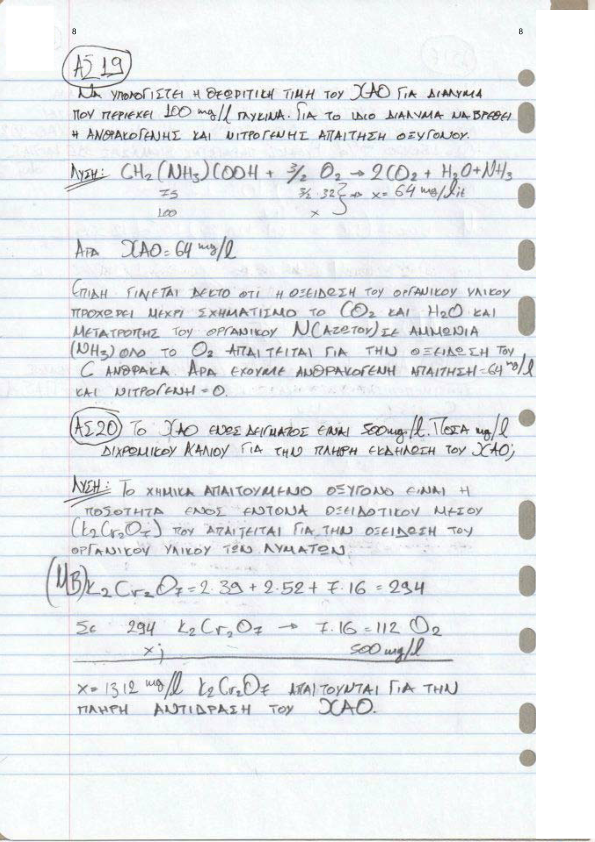 8 8
ΑΣ 19
ΝΑ ΥΠΟΛΟΓΙΣΤΕΙ Η ΘΕΩΡΙΤΙΚΗ ΤΙΜΗ ΤΟΥ ΧΑΟ ΓΙΑ ΔΙΑΛΥΜΑ
ΠΟΥ ΠΕΡΙΕΧΕΙ 100 mg/l ΓΛΥΚΙΝΑ. ΓΙΑ ΤΟ ΙΔΙΟ ΔΙΑΛΥΜΑ ΝΑ ΒΡΕΘΕΙ
Η ΑΝΘΡΑΚΟΓΕΝΗΣ ΚΑΙ ΝΙΤΡΟΓΕΝΗΣ ΑΠΑΙΤΗΣΗ ΟΞΥΓΟΝΟΥ.
ΛΥΣΗ: CH2(NH3)COOH + 3/2 O2 → 2CO2 + H2O+NH3
75 3/2·32 } → x= 64 mg/lit
100 x
ΑΡΑ ΧΑΟ=64 mg/l
ΕΠΙΔΗ ΓΙΝΕΤΑΙ ΔΕΚΤΟ ΟΤΙ Η ΟΞΕΙΔΩΣΗ ΤΟΥ ΟΡΓΑΝΙΚΟΥ ΥΛΙΚΟΥ
ΠΡΟΧΩΡΕΙ ΜΕΧΡΙ ΣΧΗΜΑΤΙΣΜΟ ΤΟ CO2 ΚΑΙ H2O ΚΑΙ
ΜΕΤΑΤΡΟΠΗΣ ΤΟΥ ΟΡΓΑΝΙΚΟΥ N(ΑΖΩΤΟΥ) ΣΕ ΑΜΜΩΝΙΑ
(NH3) ΟΛΟ ΤΟ O2 ΑΠΑΙΤΕΙΤΑΙ ΓΙΑ ΤΗΝ ΟΞΕΙΔΩΣΗ ΤΟΥ
C ΑΝΘΡΑΚΑ. ΑΡΑ ΕΧΟΥΜΕ ΑΝΘΡΑΚΟΓΕΝΗ ΑΠΑΙΤΗΣΗ=64 mg/l
ΚΑΙ ΝΙΤΡΟΓΕΝΗ=0.
ΑΣ20 ΤΟ ΧΑΟ ΕΝΟΣ ΔΕΙΓΜΑΤΟΣ ΕΙΝΑΙ 500mg/l. ΠΟΣΑ mg/l
ΔΙΧΡΩΜΙΚΟΥ ΚΑΛΙΟΥ ΓΙΑ ΤΗΝ ΠΛΗΡΗ ΕΚΔΗΛΩΣΗ ΤΟΥ ΧΑΟ;
ΛΥΣΗ: ΤΟ ΧΗΜΙΚΑ ΑΠΑΙΤΟΥΜΕΝΟ ΟΞΥΓΟΝΟ ΕΙΝΑΙ Η
ΠΟΣΟΤΗΤΑ ΕΝΟΣ ΕΝΤΟΝΑ ΟΞΕΙΔΩΤΙΚΟΥ ΜΕΣΟΥ
(K2Cr2O7) ΠΟΥ ΑΠΑΙΤΕΙΤΑΙ ΓΙΑ ΤΗΝ ΟΞΕΙΔΩΣΗ ΤΟΥ
ΟΡΓΑΝΙΚΟΥ ΥΛΙΚΟΥ ΤΩΝ ΛΥΜΑΤΩΝ.
(ΜΒ) K2Cr2O7=2·39+2·52+7·16=294
ΣΕ 294 K2Cr2O7 → 7·16=112 O2
x; 500 mg/l
x=1312 mg/l K2Cr2O7 ΑΠΑΙΤΟΥΝΤΑΙ ΓΙΑ ΤΗΝ
ΠΛΗΡΗ ΑΝΤΙΔΡΑΣΗ ΤΟΥ ΧΑΟ.